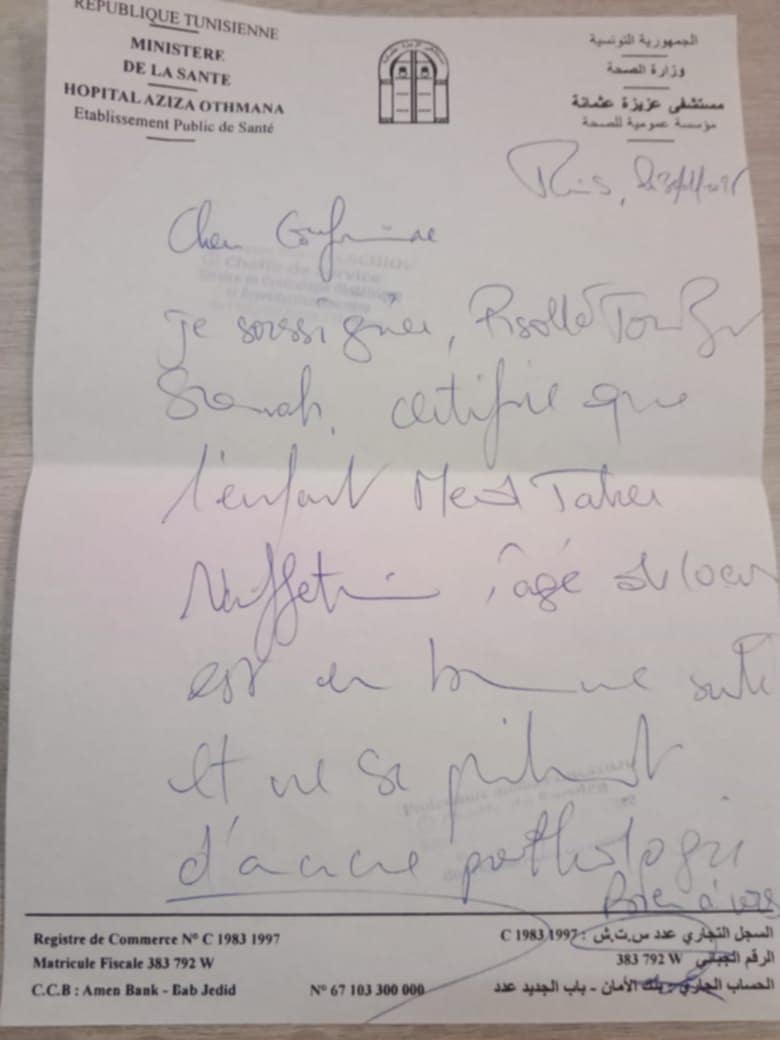 REPUBLIQUE TUNISIENNE
MINISTERE
DE LA SANTE
HOPITAL AZIZA OTHMANA
Etablissement Public de Santé
الجمهورية التونسية
وزارة الصحة
مستشفى عزيزة عثمانة
مؤسسة عمومية للصحة
Tunis,
Cher Confrère
je soussignée,
certifie que
l'enfant Med Taher
âgé de
est en bonne santé
et ne se
d'aucune pathologie
Bien à vous
Registre de Commerce N° C 1983 1997
Matricule Fiscale 383 792 W
C.C.B : Amen Bank - Bab Jedid N° 67 103 300 000
السجل التجاري عدد س.ت.ش : C 1983 1997
الرقم الجبائي 383 792 W
الحساب الجاري - بنك الأمان - باب الجديد عدد